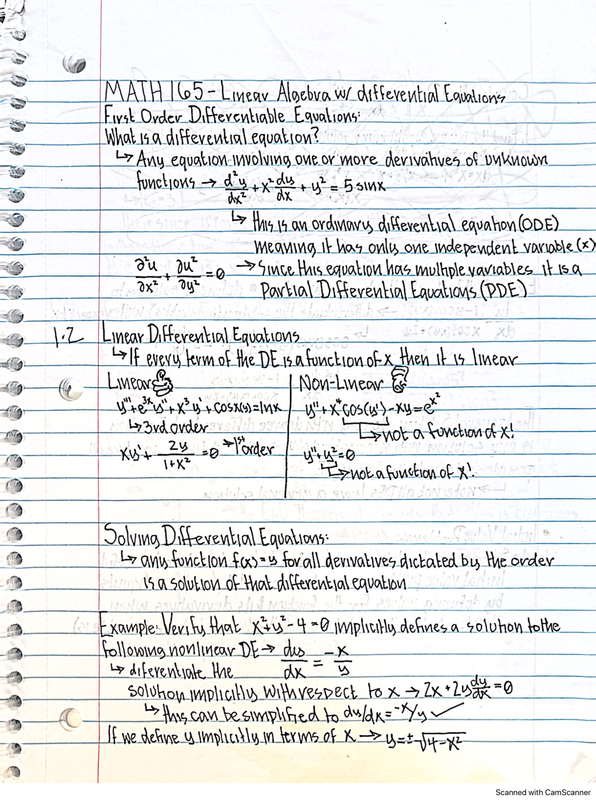 MATH 165 - Linear Algebra w/ differential Equations
First Order Differentiable Equations:
What is a differential equation?
↳ Any equation involving one or more derivatives of unknown
functions → d²y/dx² + x² dy/dx + y² = 5 sinx
↳ this is an ordinary differential equation (ODE)
meaning it has only one independent variable (x)
∂²u/∂x² + ∂u²/∂y² = 0 → Since this equation has multiple variables it is a
Partial Differential Equations (PDE)
1.2 Linear Differential Equations
↳ If every term of the DE is a function of x then it is linear
Linear
y''' + e³ˣy'' + x³y' + cos(x)y = lnx
↳ 3rd order
xy' + 2y/(1+x²) = 0 → 1st order
Non-Linear
y'' + x⁴cos(y') - xy = e^x²
↳ not a function of x!
y'' + y² = 0
↳ not a function of x!
Solving Differential Equations:
↳ any function f(x) = y for all derivatives dictated by the order
is a solution of that differential equation
Example: Verify that x² + y² - 4 = 0 implicitly defines a solution to the
following nonlinear DE → dy/dx = -x/y
↳ diferentiate the
solution implicitly with respect to x → 2x + 2y dy/dx = 0
↳ this can be simplified to dy/dx = -x/y ✓
If we define y implicitly in terms of x → y = ±√(4-x²)
Scanned with CamScanner